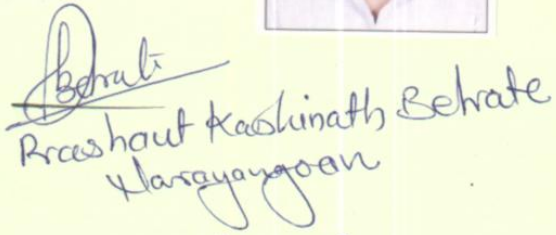 Behrate
Prashant Kashinath Behrate
Narayangaon